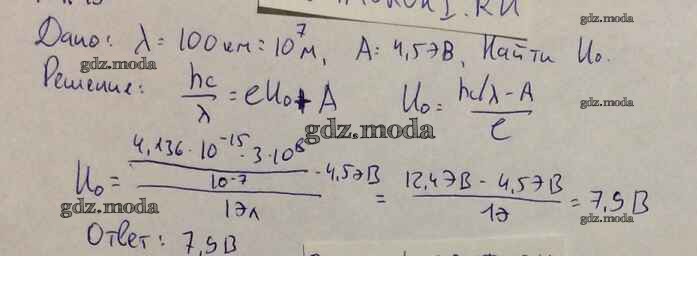 Дано: λ = 100 км = 10⁷ м, A = 4,5 эВ, Найти U₀.
gdz.moda
gdz.moda
Решение: hc/λ = eU₀ + A U₀ = (hc/λ - A)/e
gdz.moda
gdz.moda
U₀ = ((4,136 · 10⁻¹⁵ · 3 · 10⁸)/10⁻⁷ - 4,5 эВ)/1 эл = (12,4 эВ - 4,5 эВ)/1 э = 7,9 В
gdz.moda
gdz.moda
Ответ: 7,9 В